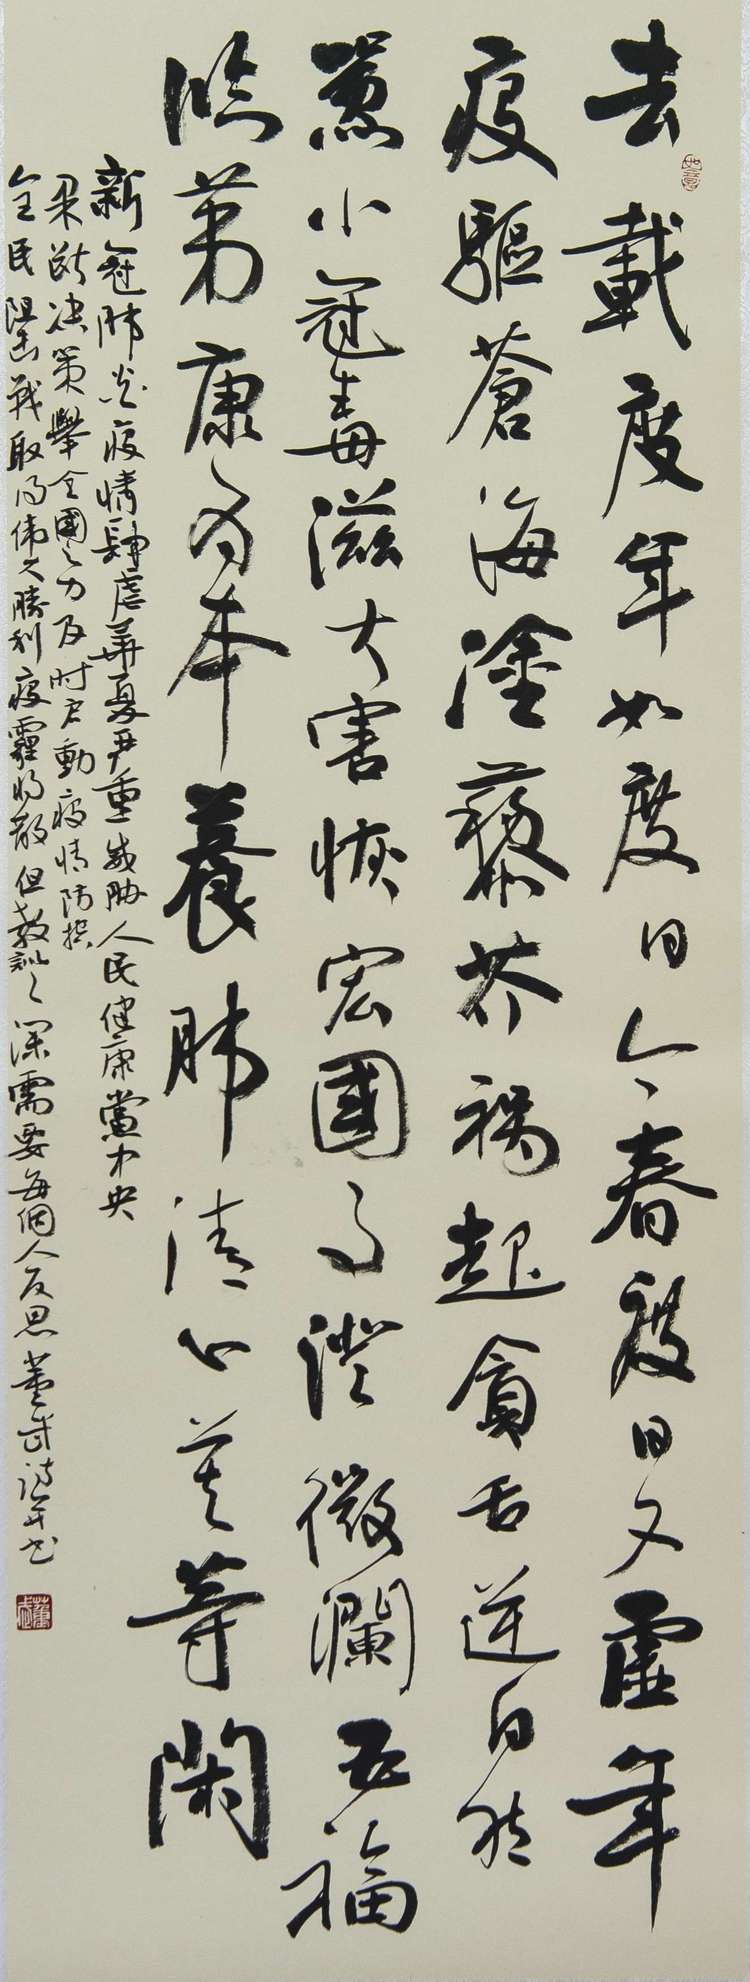 去載度年如度日今春度日又虛年
疫驅蒼海塗藜芥禍起貪舌逆自然
蕞小冠毒滋大害恢宏國手證微瀾五福
臨弟康為本養肺清心莫等閑
新冠肺炎疫情肆虐華夏嚴重威胁人民健康黨中央
果斷决策舉全國之力及时启動疫情防控
全民阻击战取得伟大勝利疫霾将散但教訓之深需要每個人反思董武詩并书